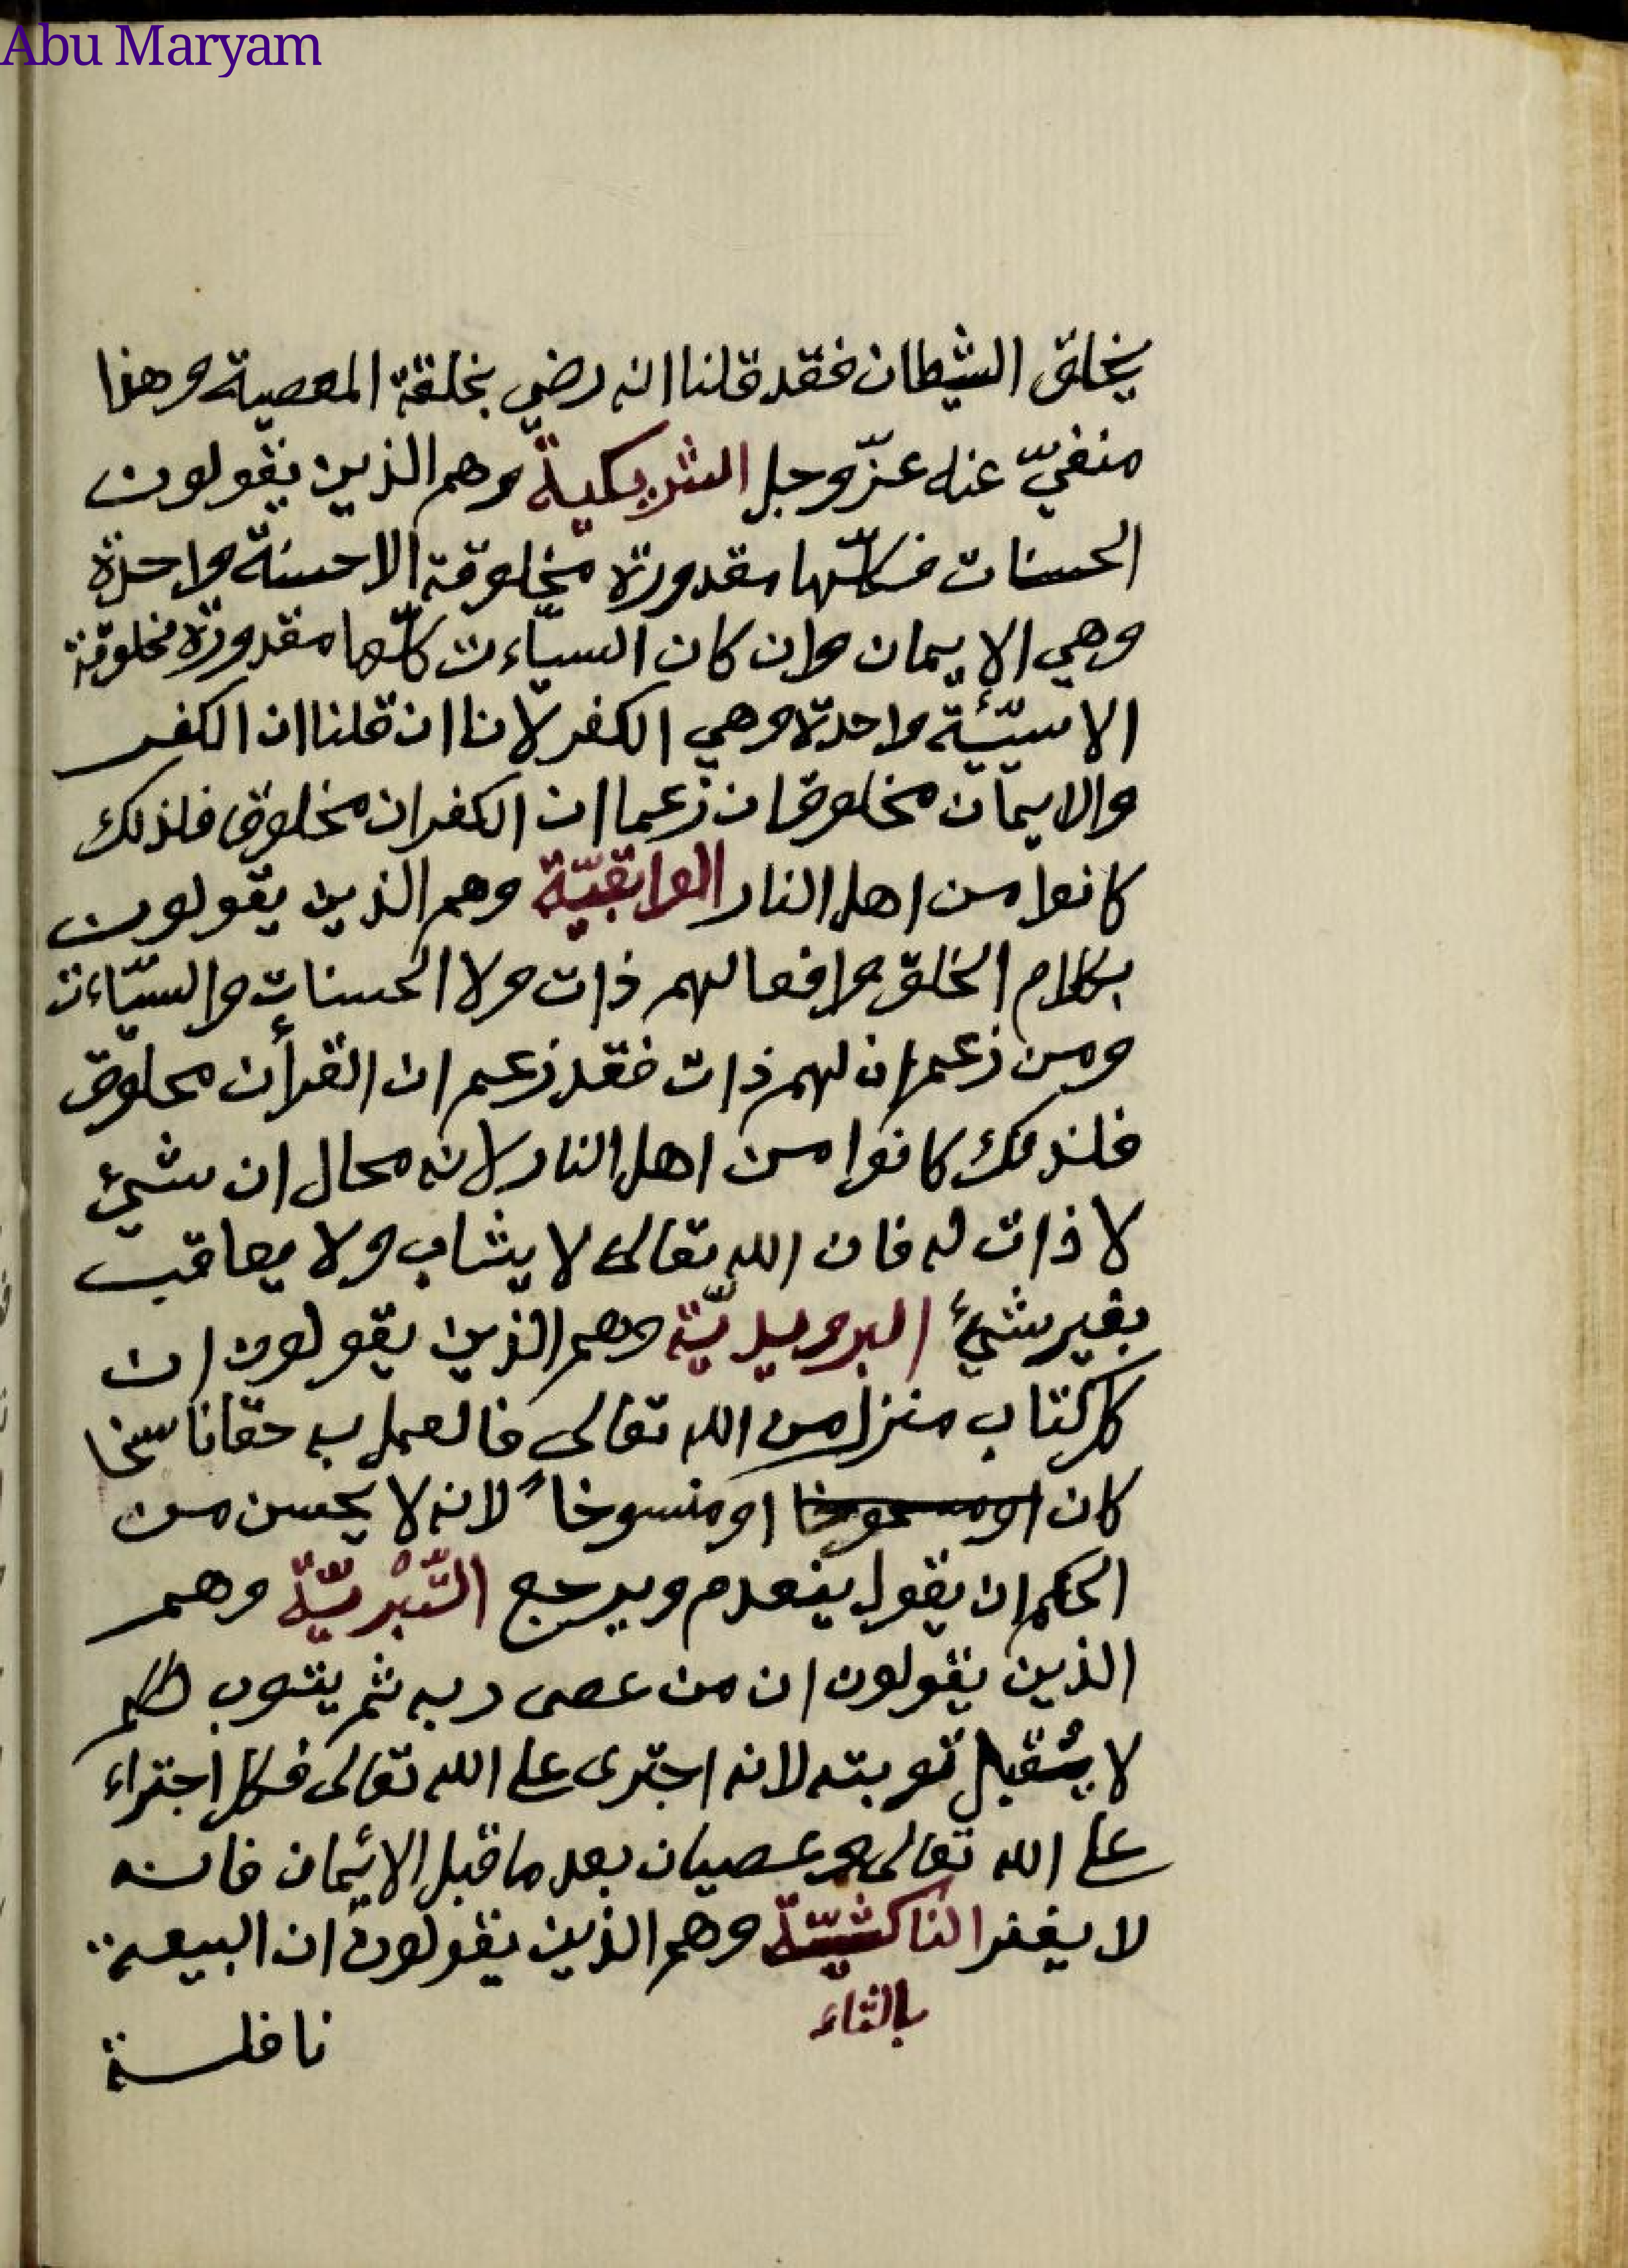 Abu Maryam
يخلق الشيطان فقد قلنا انه رضي بخلقة المعصية وهذا
منفيّ عنه عزّ وجل الشريكية وهم الذين يقولون
الحسنات فكلّها مقدورة مخلوقة الا حسنة واحدة
وهي الايمان وان كان السيّاءت كلّها مقدورة مخلوقة
الا سيّئة واحدة وهي الكفر لانا ان قلنا ان الكفر
والايمان مخلوقان زعما ان الكفران مخلوق فلذلك
كانوا من اهل النار الوابقيّة وهم الذين يقولون
بكلام الخلق وافعالهم ذات ولا الحسنات والسيّاءت
ومن زعم ان لهم ذات فقد زعم ان القرأن محلوق
فلذلك كانوا من اهل النار لانه محال ان شيئ
لا ذات له فان الله تعالى لا يثاب ولا يعاقب
بغير شيئ البرويديّة وهم الذين يقولون ان
كل كتاب منزل من الله تعالى فالعمل به حقا ناسخا
كان او منسوخا لانه لا يحسن من
الحكم ان يقول ينعدم ويرجع التّبْريّة وهم
الذين يقولون ان من عصى ربه ثم يتوب
لا يُقبل توبته لانه اجترى على الله تعالى فكل اجتراء
على الله تعالى وعصيان بعد ما قبل الائيمان فانه
لا يغفر الناكثيّة وهم الذين يقولون ان البيعة
بالثاء
نافلة